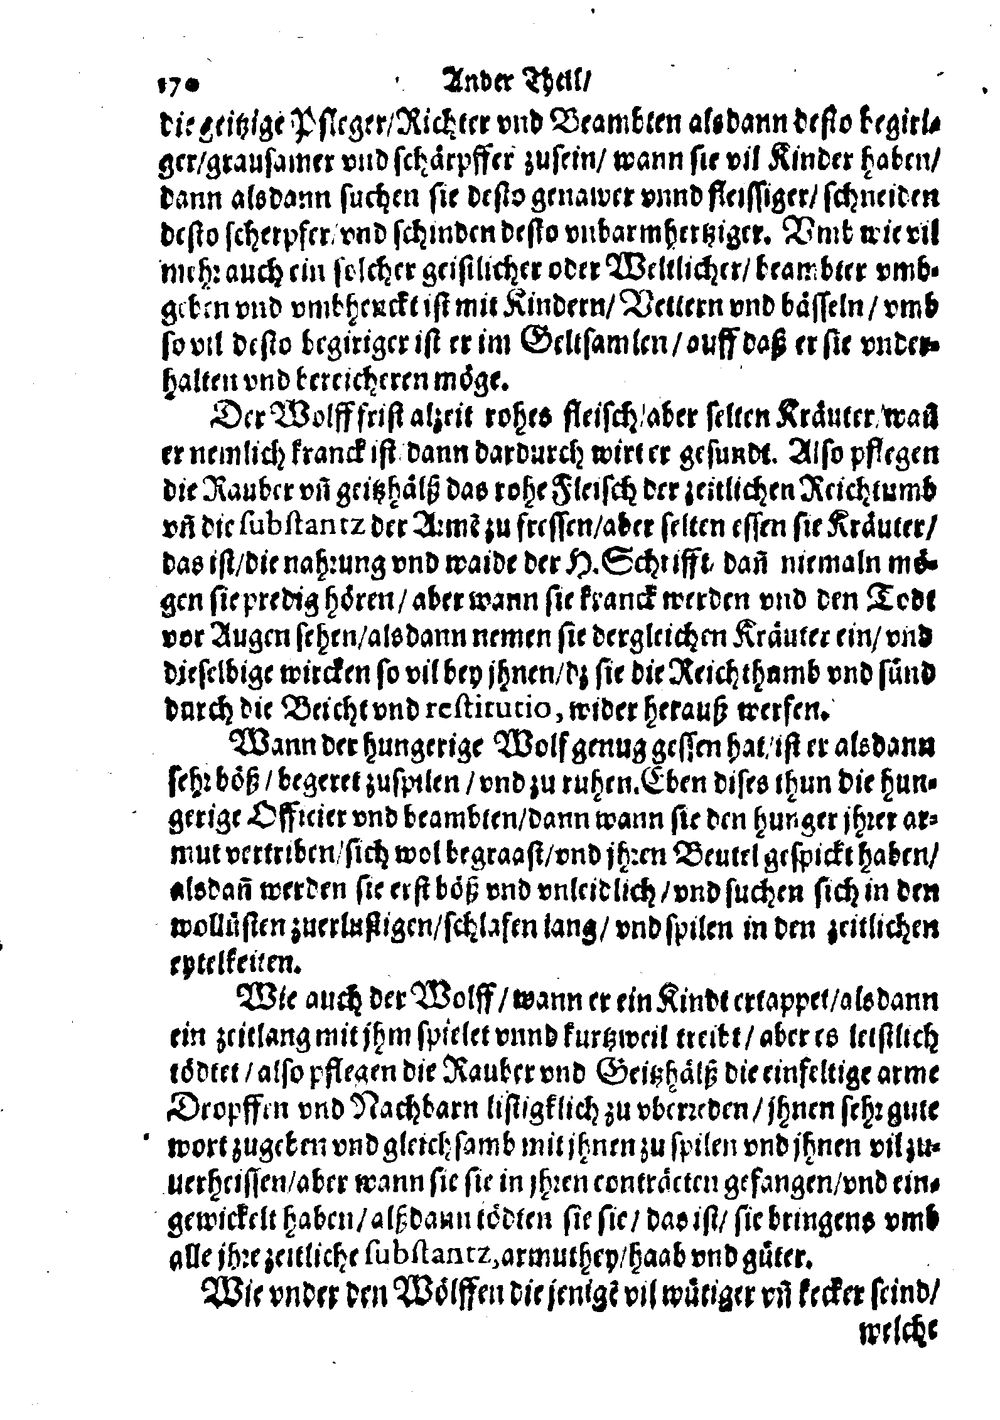 170 Ander Theil/
die geitzige Pfleger/Richter vnd Beambten alsdann desto begirl-
ger/grausamer vnd schärpffer zusein/ wann sie vil Kinder haben/
dann alsdann suchen sie desto genawer vnnd fleissiger/ schneiden
desto scherpfer/vnd schinden desto vnbarmhertziger. Vmb wie vil
mehr auch ein solcher geistlicher oder Weltlicher/ beambter vmb-
geben vnd vmbhenckt ist mit Kindern/ Vettern vnd bässeln/ vmb
so vil desto begiriger ist er im Geltsamlen/ auff daß er sie vnder-
halten vnd bereicheren möge.
Der Wolff frist alzeit rohes fleisch/ aber selten Kräuter/wañ
er nemlich kranck ist dann dardurch wirt er gesundt. Also pflegen
die Rauber vñ geitzhälß das rohe Fleisch der zeitlichen Reichtumb
vñ die substantz der Armẽ zu fressen/aber selten essen sie Kräuter/
das ist/die nahrung vnd waide der H. Schrifft/ dañ niemaln mö-
gen sie predig hören/ aber wann sie kranck werden vnd den Todt
vor Augen sehen/alsdann nemen sie dergleichen Kräuter ein/ vnd
dieselbige wircken so vil bey jhnen/dz sie die Reichthumb vnd sünd
durch die Beicht vnd restitutio, wider herauß werfen.
Wann der hungerige Wolf genug gessen hat/ist er alsdann
sehr böß/ begeret zuspilen/ vnd zu ruhen. Eben dises thun die hun-
gerige Officier vnd beambten/dann wann sie den hunger jhrer ar-
mut vertriben/sich wol begraast/vnd jhren Beutel gespickt haben/
alsdañ werden sie erst böß vnd vnleidlich/vnd suchen sich in den
wollüsten zuerlustigen/schlafen lang/ vnd spilen in den zeitlichen
eytelkeiten.
Wie auch der Wolff/wann er ein Kindt ertappet/alsdann
ein zeitlang mit jhm spielet vnnd kurtzweil treibt/ aber es letstlich
tödtet/also pflegen die Rauber vnd Geitzhälß die einfeltige arme
Dropffen vnd Nachbarn listigklich zu vberreden/jhnen sehr gute
wort zugeben vnd gleichsamb mit jhnen zu spilen vnd jhnen vil zu-
uerheissen/aber wann sie sie in jhren conträcten gefangen/vnd ein-
gewickelt haben/ alßdann tödten sie sie/ das ist/ sie bringens vmb
alle jhre zeitliche substantz, armuthey/haab vnd güter.
Wie vnder den Wölffen die jenigẽ vil wütiger vñ kecker seind/
welche